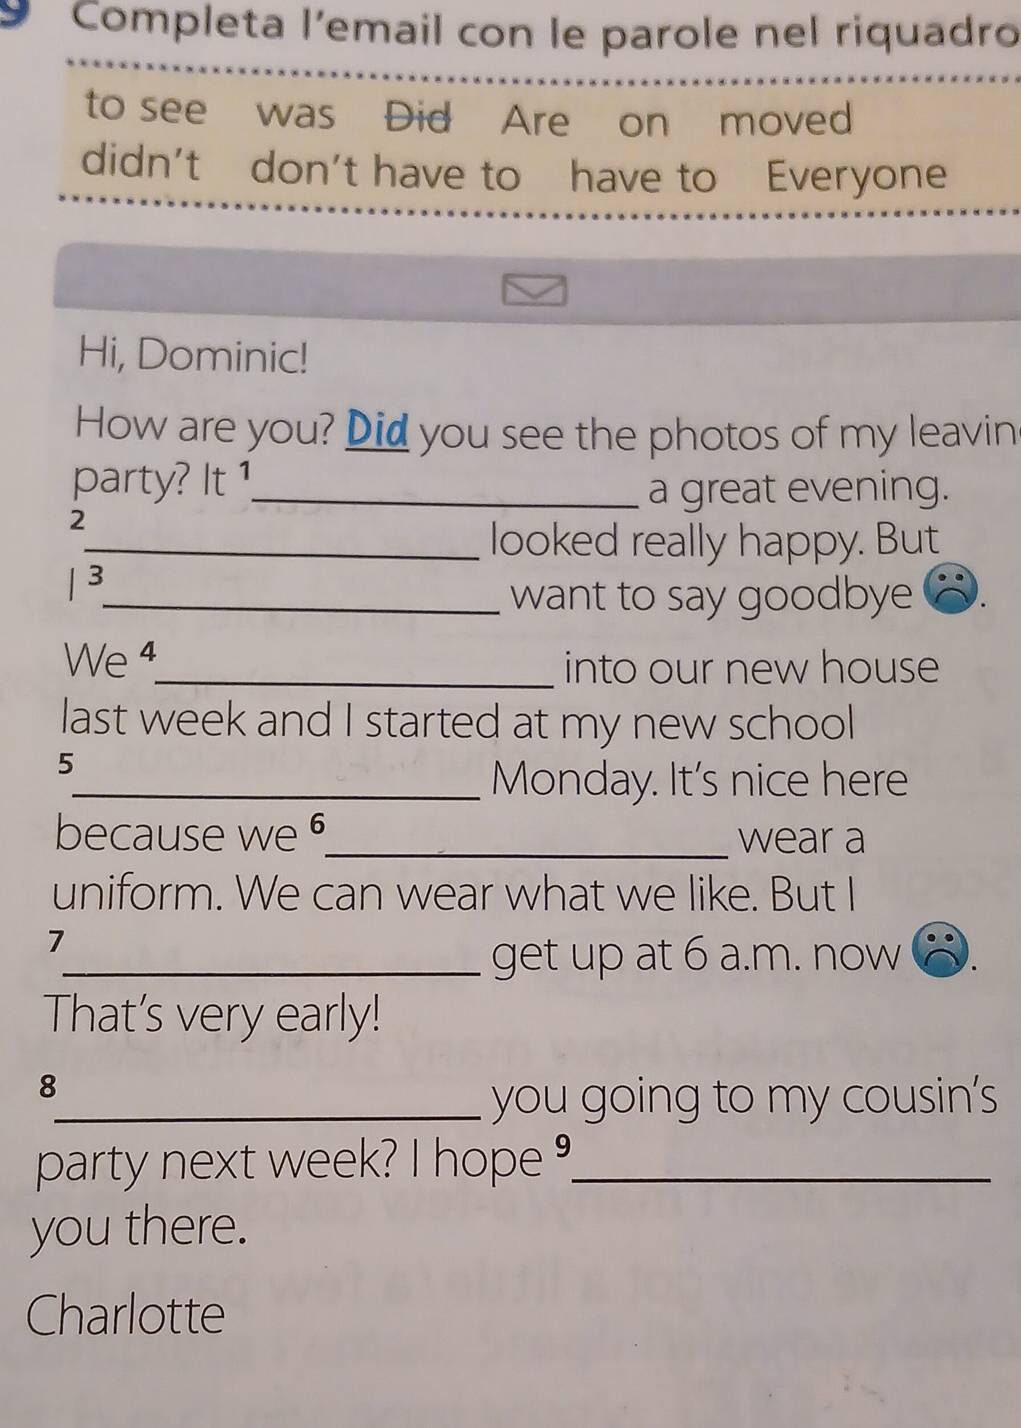 9 Completa l'email con le parole nel riquadro
to see was Did Are on moved
didn't don't have to have to Everyone
Hi, Dominic!
How are you? Did you see the photos of my leavin
party? It 1 a great evening.
2 looked really happy. But
I 3 want to say goodbye .
We 4 into our new house
last week and I started at my new school
5 Monday. It's nice here
because we 6 wear a
uniform. We can wear what we like. But I
7 get up at 6 a.m. now .
That's very early!
8 you going to my cousin's
party next week? I hope 9
you there.
Charlotte